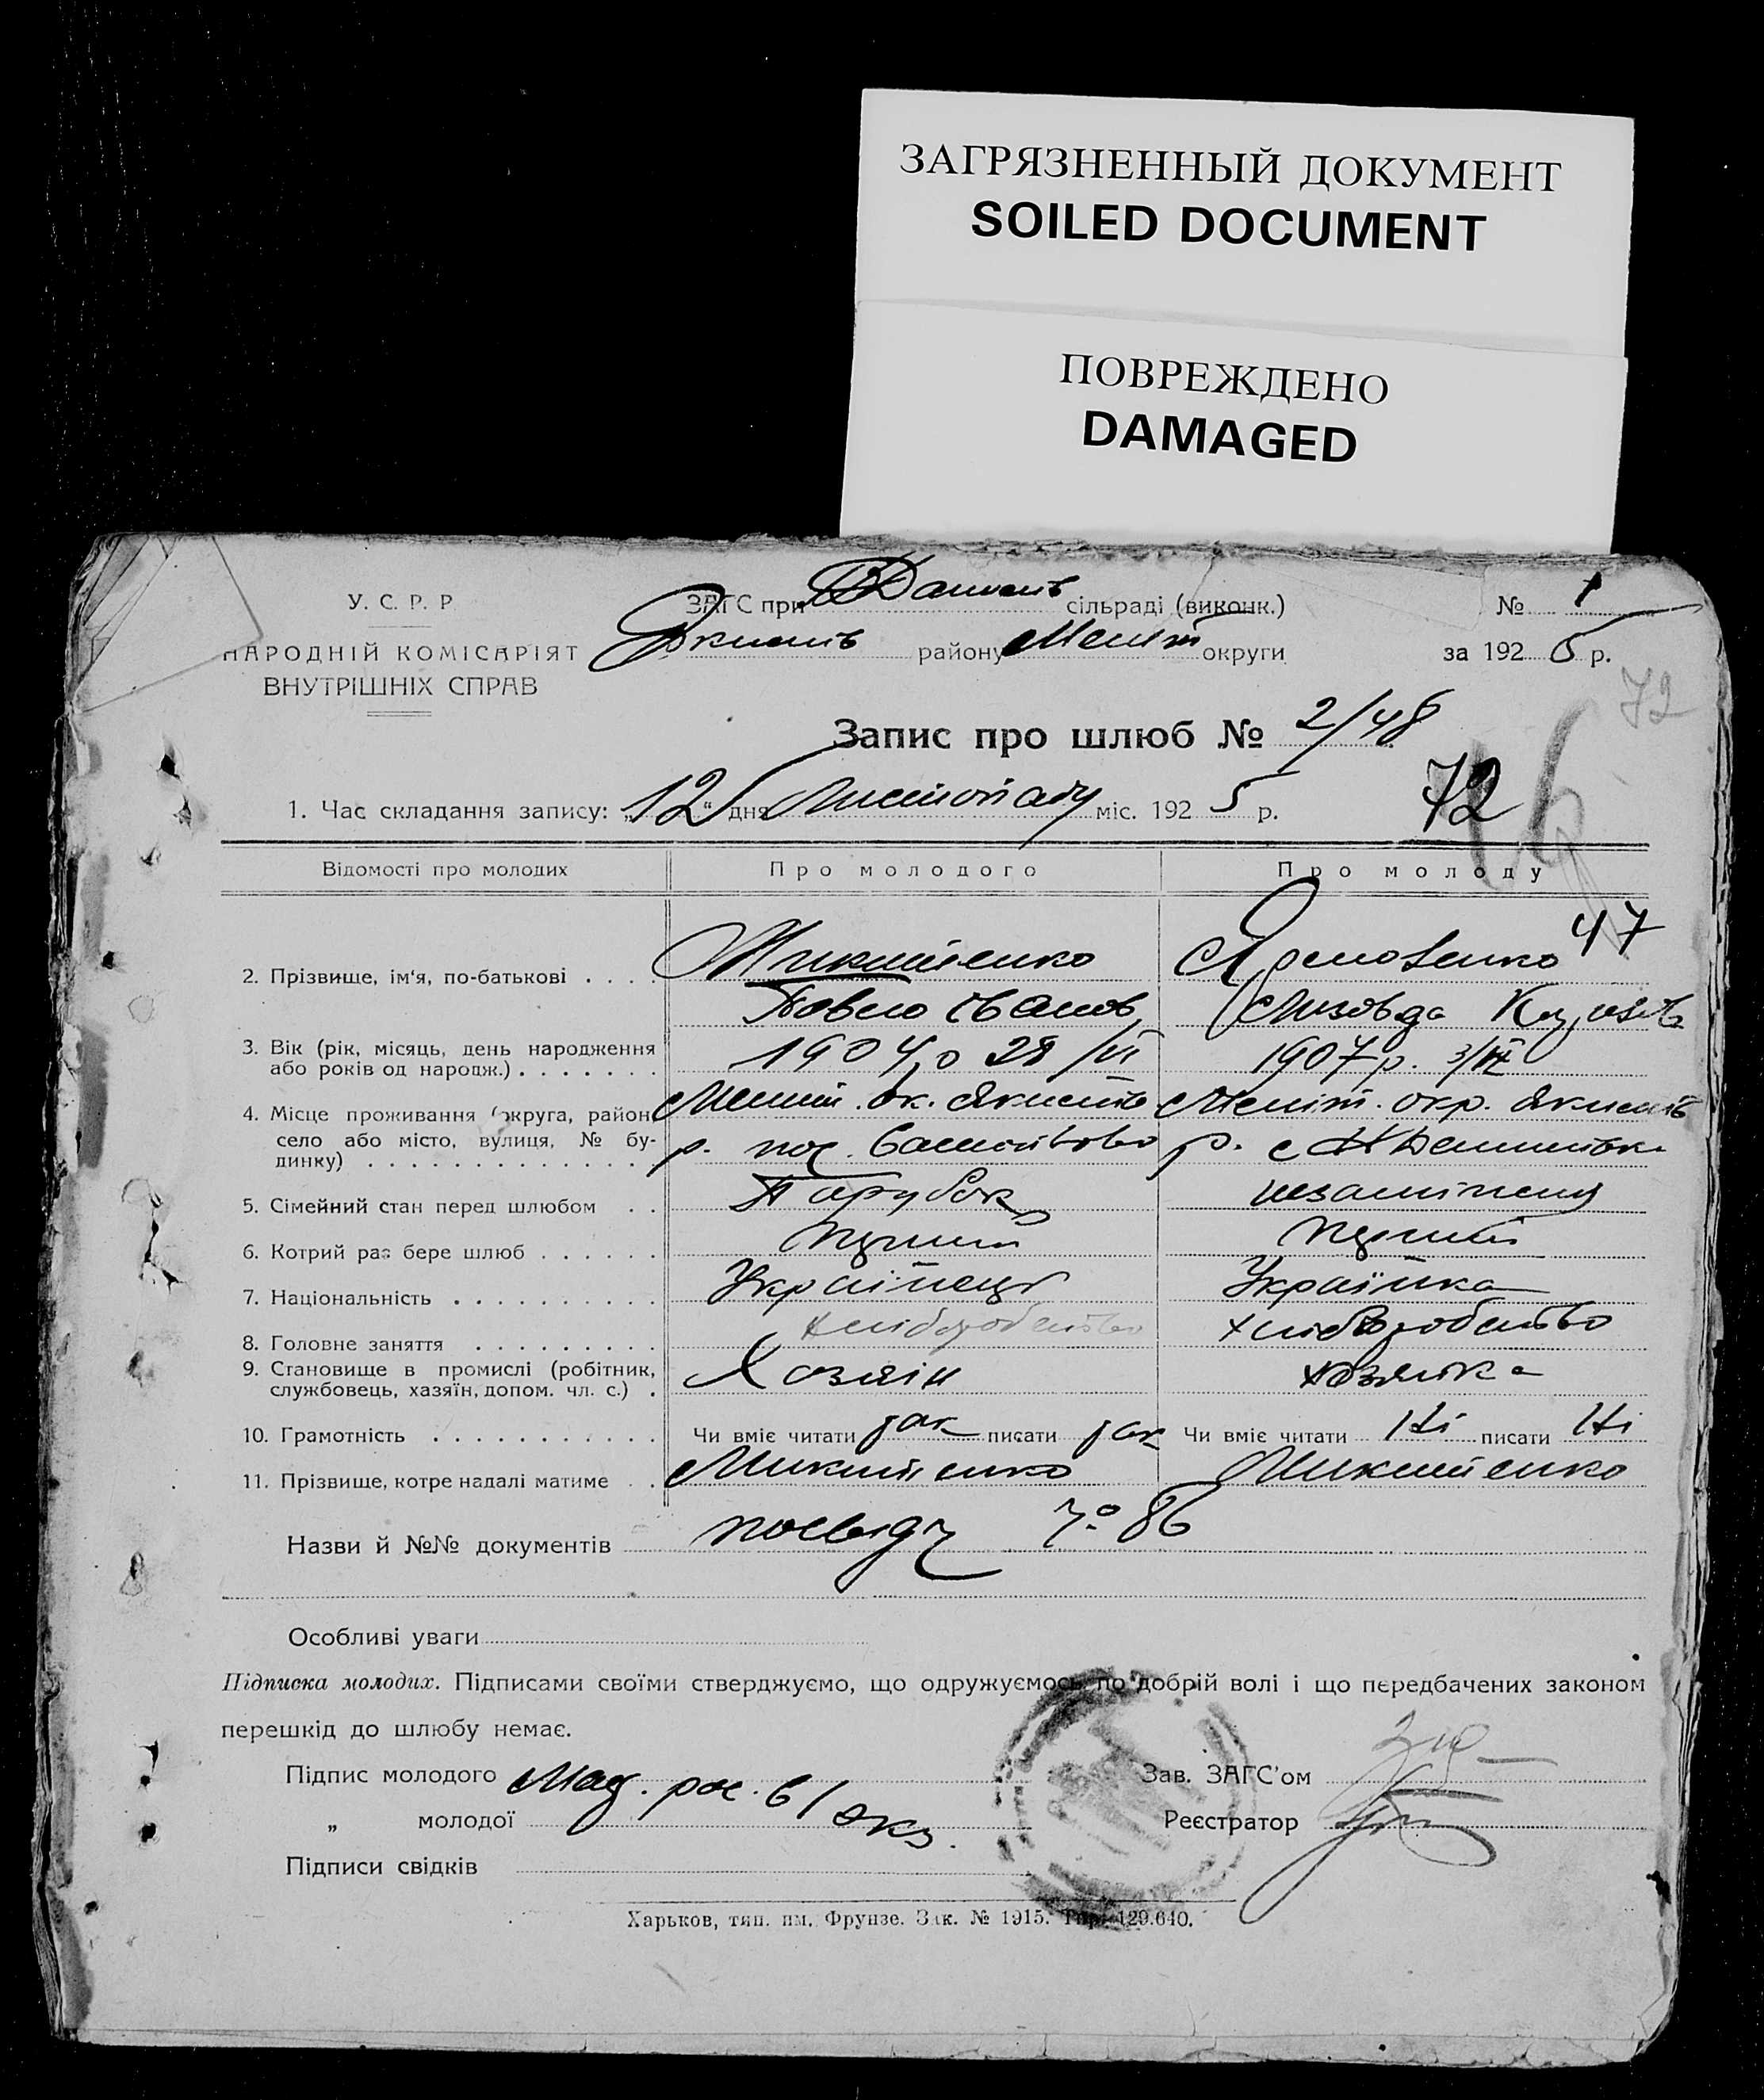 ЗАГРЯЗНЕННЫЙ ДОКУМЕНТ
SOILED DOCUMENT
ПОВРЕЖДЕНО
DAMAGED
У. С. Р. Р
НАРОДНІЙ КОМІСАРІЯТ
ВНУТРІШНІХ СПРАВ
ЗАГС при сільраді (виконк.) № 1
району Меліт округи за 1925 р.
72
Запис про шлюб № 2/48
1. Час складання запису: „12“ дня Листопаду міс. 1925 р.
72
Відомості про молодих Про молодого Про молоду
47
2. Прізвище, ім'я, по-батькові . . . . Микитенко
Павло Іванов
3. Вік (рік, місяць, день народження 1904 р 28/VI 1907 р.
або років од народж.) . . . . . . .
4. Місце проживання (округа, район, Меліт. ок. Якимів Меліт. окр. Якимів
село або місто, вулиця, № бу- р. пос. р. с
динку) . . . . . . . . . . . . .
5. Сімейний стан перед шлюбом . . Парубок незаміжня
6. Котрий раз бере шлюб . . . . . . перший перший
7. Національність . . . . . . . . . . Українець Українка
8. Головне заняття . . . . . . . . . хліборобство хліборобство
9. Становище в промислі (робітник, Хазяїн хазяйка
службовець, хазяїн, допом. чл. с.) .
10. Грамотність . . . . . . . . . . . Чи вміє читати так писати так Чи вміє читати Ні писати Ні
11. Прізвище, котре надалі матиме . . Микитенко Микитенко
Назви й №№ документів посвідч № 86
Особливі уваги
Підписка молодих. Підписами своїми стверджуємо, що одружуємось по добрій волі і що передбачених законом
перешкід до шлюбу немає.
Підпис молодого Зав. ЗАГС'ом
„ молодої Реєстратор
Підписи свідків
Харьков, тип. им. Фрунзе. Зак. № 1915. Тир. 129.640.